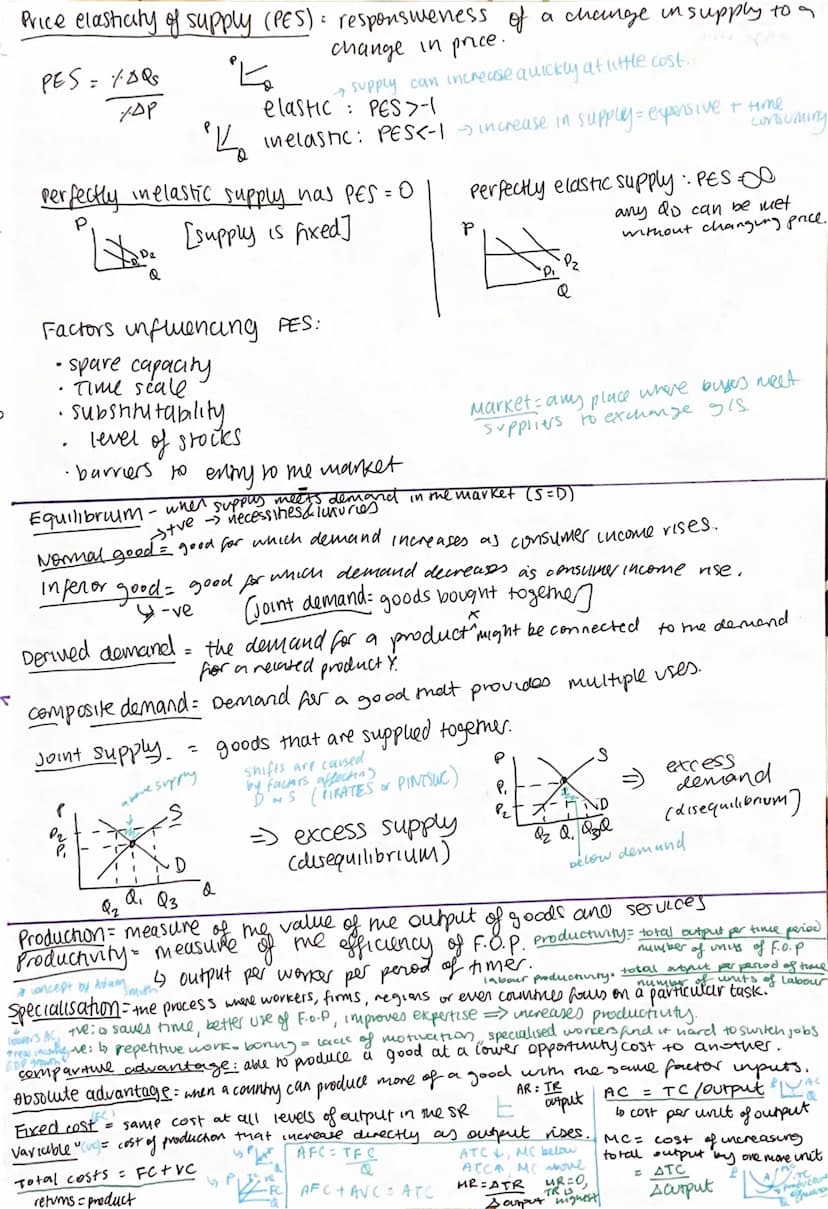 Price elasticity of supply (PES): responsiveness of a change in supply to a
change in price.
PES = %ΔQs
%ΔP
P
Q
→ supply can increase quickly at little cost.
elastic : PES>-1
P
Q
inelastic: PES<-1 → increase in supply = expensive + time
consuming
Perfectly inelastic supply has PES = 0
P
[supply is fixed]
D1 D2
Q
Perfectly elastic supply : PES = ∞
any QD can be met
without changing price.
P
D1 D2
Q
Factors influencing PES:
• spare capacity
• Time scale
• substitutability
• level of stocks
• barriers to entry to the market
Market = any place where buyers meet
suppliers to exchange g/s.
Equilibrium - when supply meets demand in the market (S=D)
→ +ve → necessities & luxuries
Normal good = good for which demand increases as consumer income rises.
Inferior good = good for which demand decreases as consumer income rise.
↳ -ve [joint demand = goods bought together]
Derived demand = the demand for a product X might be connected to the demand
for a related product Y.
composite demand = Demand for a good that provides multiple uses.
Joint supply = goods that are supplied together.
above supply
shifts are caused
by factors affecting
D or S (PIRATES or PINTSWC)
P
P2
P1
S
D
Q2 Q1 Q3 Q
⇒ excess supply
(disequilibrium)
P
P1
P2
S
D
Q2 Q1 Q3 Q
below demand
⇒ excess
demand
(disequilibrium)
Production = measure of the value of the output of goods and services
Productivity = measure of the efficiency of F.O.P. Productivity = total output per time period
number of units of F.O.P
↳ output per worker per period of timer. labour productivity = total output per period of time
number of units of labour
* concept by Adam Smith
Specialisation = the process where workers, firms, regions or even countries focus on a particular task.
+ve: ↳ saves time, better use of F.O.P, improves expertise ⇒ increases productivity.
lowers AC
-ve: ↳ repetitive work = boring = lack of motivation, specialised workers find it hard to switch jobs
comparitive advantage: able to produce a good at a lower opportunity cost to another.
Absolute advantage: when a country can produce more of a good with the same factor inputs.
AR = TR
output
AC = TC/output
↳ cost per unit of output
Fixed cost (FC) = same cost at all levels of output in the SR
Variable " (VC) = cost of production that increase directly as output rises.
MC = cost of increasing
total output by one more unit
= ΔTC
Δoutput
Total costs = FC + VC
returns = product
P
FC
Q
AFC = TFC
Q
AFC + AVC = ATC
ATC ↓, MC below
ATC ↑, MC above
MR = ΔTR
Δoutput
MR = 0,
TR is
highest